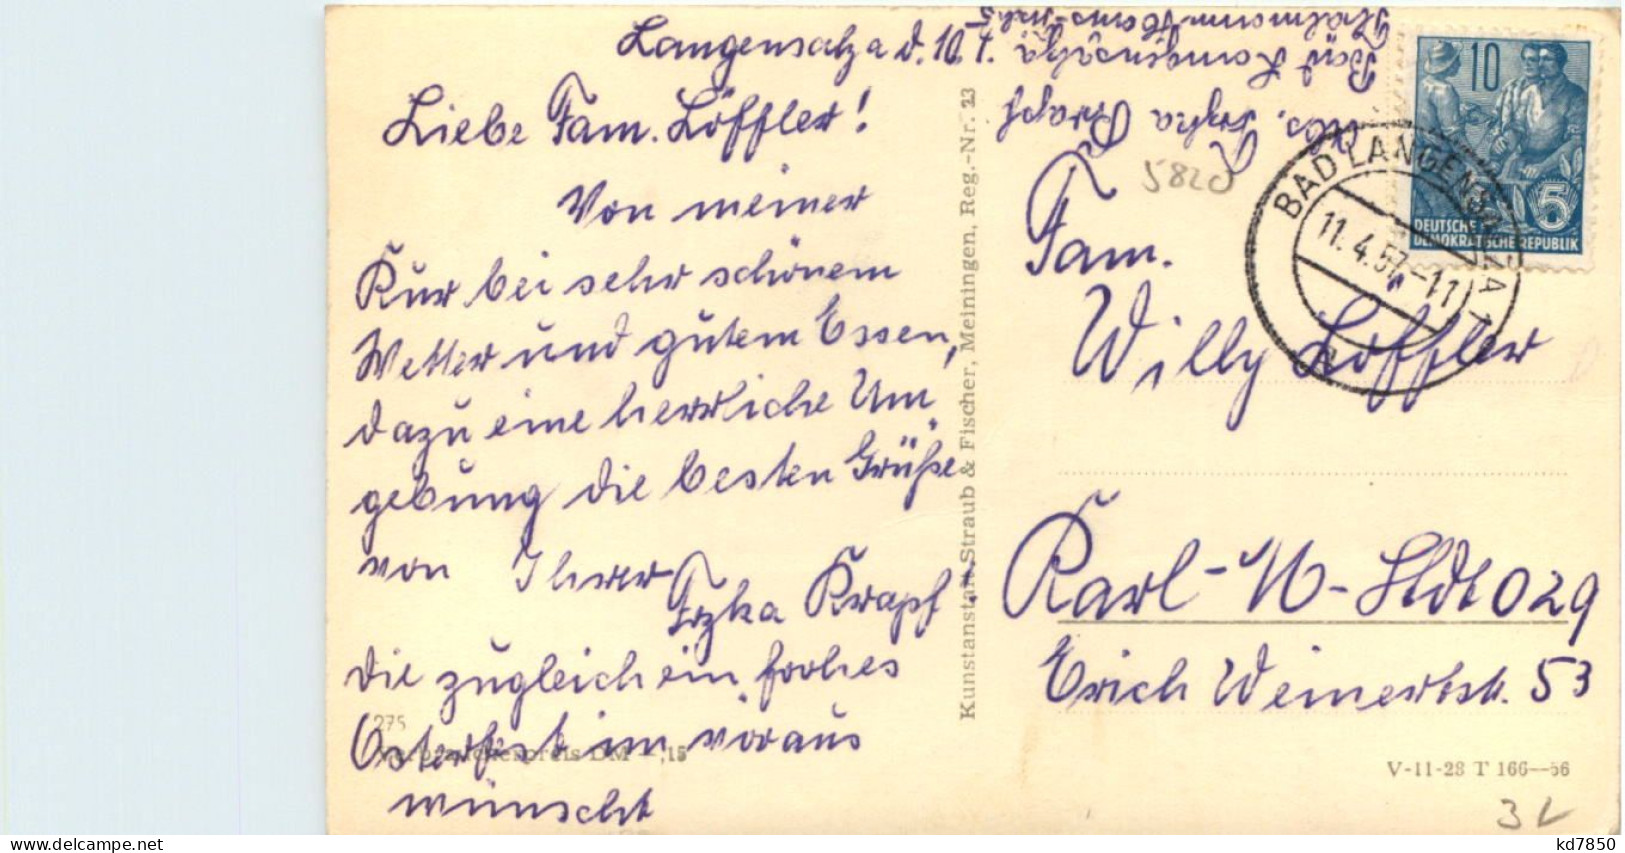 Langensalza d. 10.
Liebe Fam. Löffler!
Von meiner
Kur bei sehr schönem
Wetter und gutem Essen,
dazu eine herrliche Um
gebung die besten Grüße
von Ihrer
Krapf.
die zugleich ein frohes
Osterfest im voraus
wünscht
275
Verbraucherpreis DM -,15
Kunstanstalt Straub & Fischer, Meiningen, Reg.-Nr. 23
Abs.
Krapf
Bad Langensalza
5820
10
DEUTSCHE
DEMOKRATISCHE REPUBLIK
BAD LANGENSALZA 1
11.4.57.-11
Fam.
Willy Löffler
Karl-M-Stdt 029
Erich Weinertstr. 53
V-11-28 T 166—56
delcampe.net
kd7850